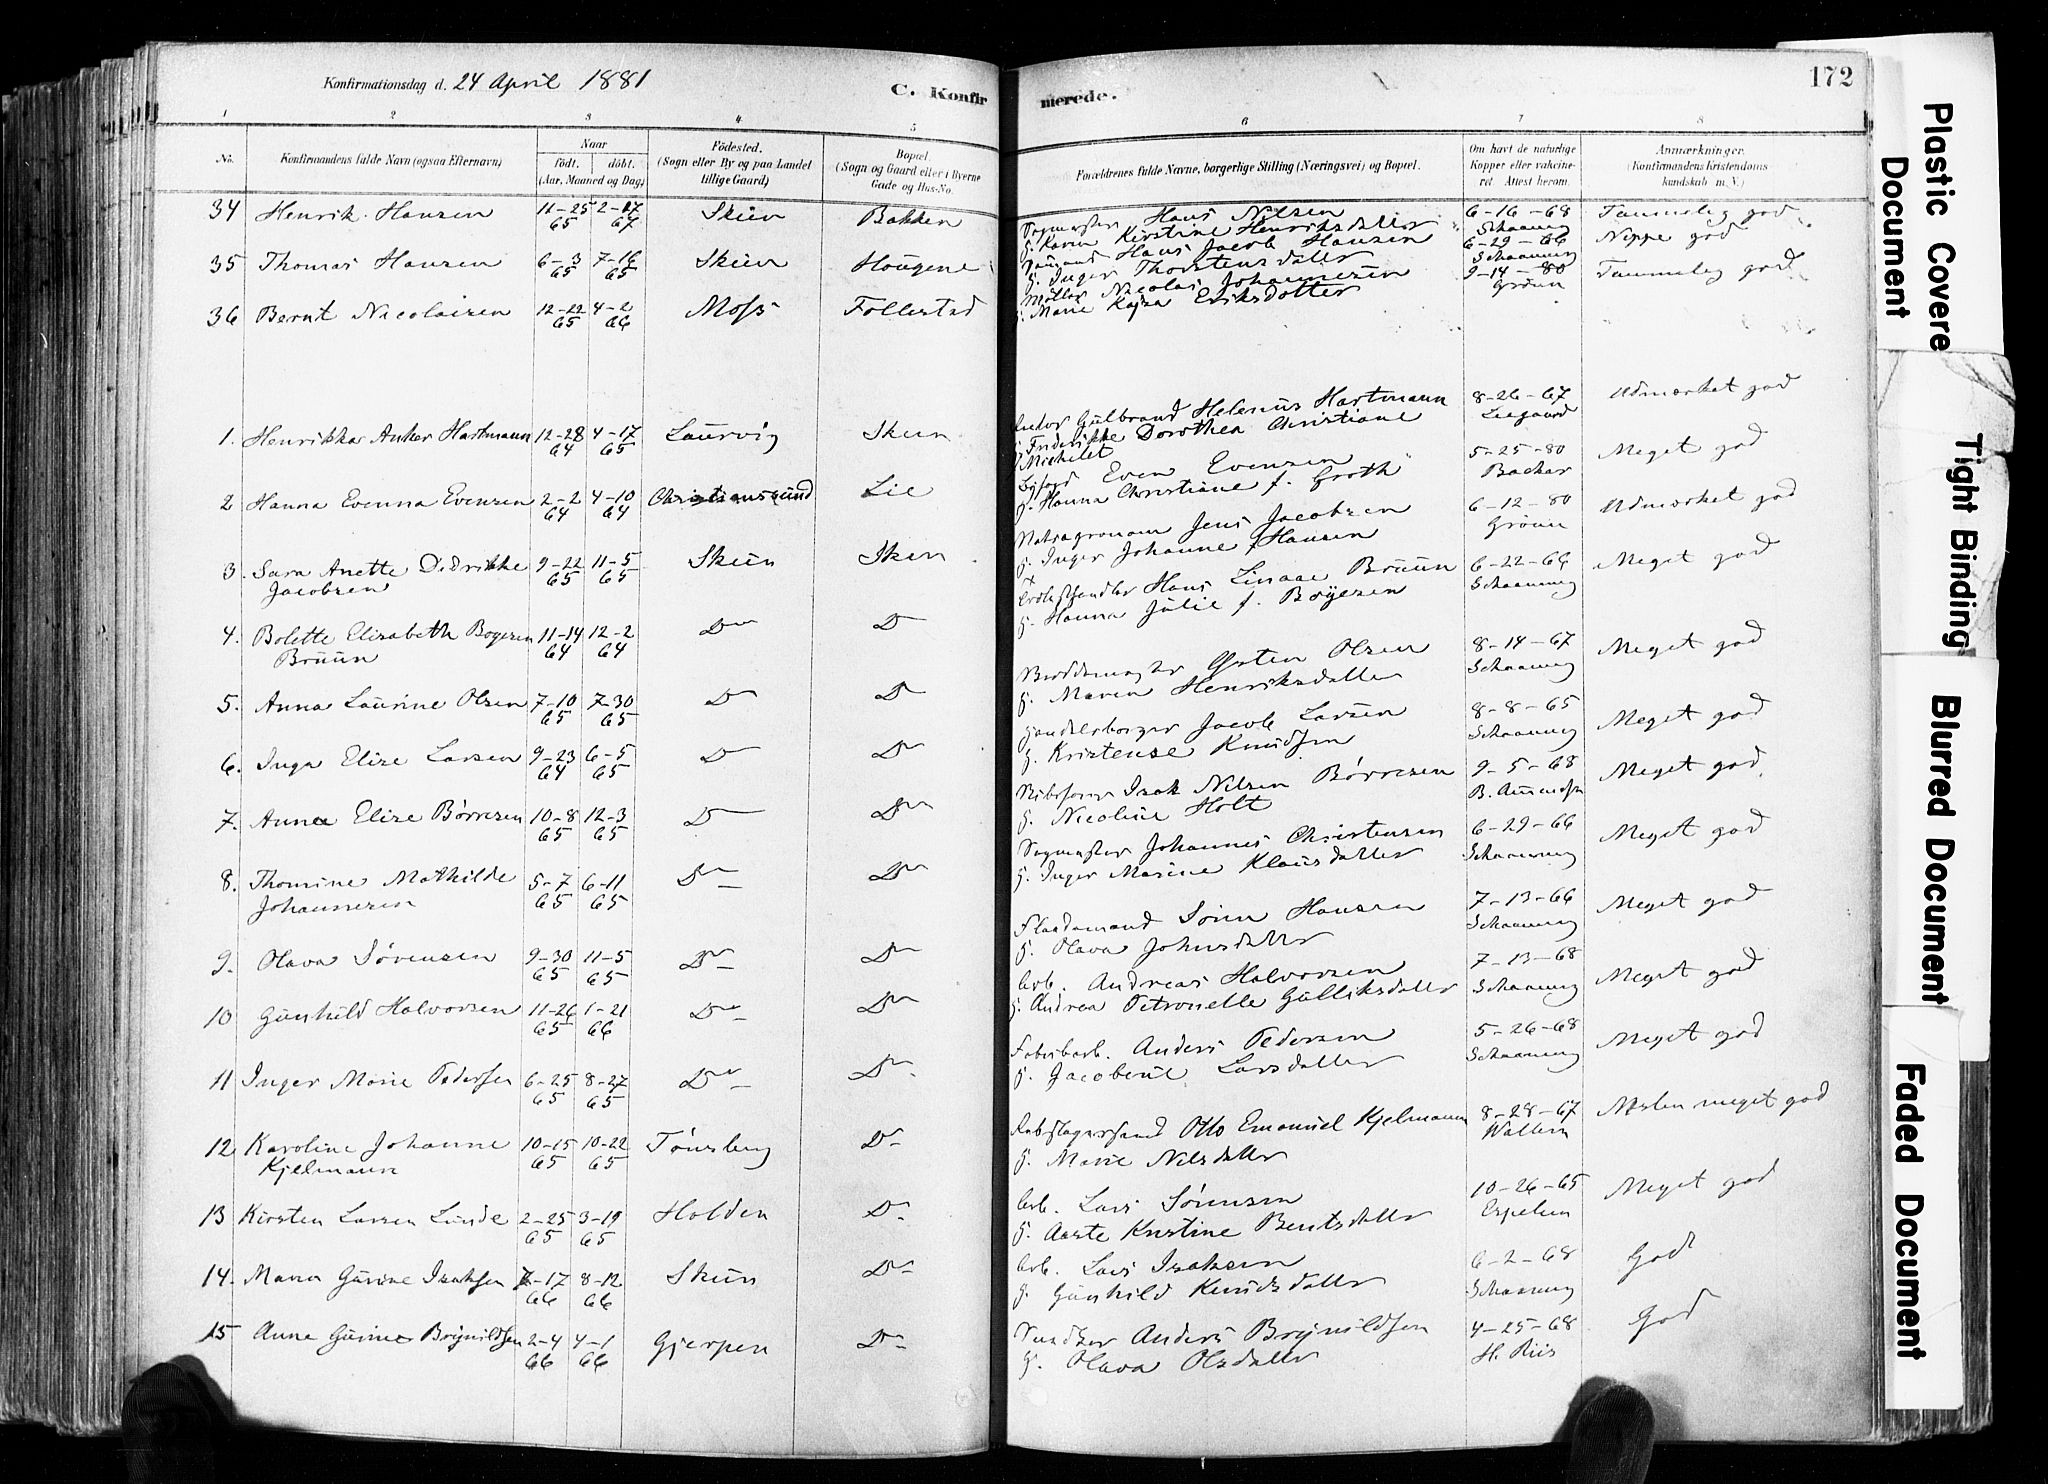 Konfirmationsdag d. 24 April 1881
C. Konfir
merede.
172
1 2 3 4 5 6 7 8
No.
Konfirmandens fulde Navn (ogsaa Efternavn)
Naar
födt. döbt.
(Aar, Maaned og Dag)
Födested.
(Sogn eller By og paa Landet
tillige Gaard)
Bopæl.
(Sogn og Gaard eller i Byerne
Gade og Hus-No.
Forældrenes fulde Navne, borgerlige Stilling (Næringsvei) og Bopæl.
Om havt de naturlige
Kopper eller vakcine-
ret. Attest herom.
Anmærkninger.
(Konfirmandens Kristendoms
kundskab m. V.)
34 Henrik Hansen 11-25 65 2-17 67 Skien Bakken
Hans Nilsen
g. Karen Kirstine Henriksdatter
6-16-68 Schaanning
Temmelig god
35 Thomas Hansen 6-3 65 7-16 65 Skien Hougene
Hans Jacob Hansen
g. Inger Thorstensdatter
6-29-66 Schaanning
Neppe god
36 Bernt Nicolaisen 12-22 65 4-2 66 Moss Follestad
Møller Nicolai Johannesen
g. Marie Kajsa Eriksdotter
9-14-80 Grönn
Temmelig god
1. Henrikka Anker Hartmann 12-28 64 4-17 65 Laurvig Skien
Gulbrand Helenius Hartmann
g. Fredrikke Dorothea Christiane
Michelet
8-26-67
Udmærket god
2 Hanna Evenna Evensen 2-2 64 4-10 64 Christianssund Lie
Even Evensen
g. Hanna Christiane f. Groth
5-25-80 Backer
Meget god
3. Sara Anette Didrikke
Jacobsen
9-22 65 11-5 65 Skien Skien
Jens Jacobsen
g. Inger Johanne Hansen
6-12-80 Grönn
Udmærket god
4. Bolette Elisabeth Boyesen
Bruun
11-14 64 12-2 64 Do D
Hans Linaae Bruun
g. Hanna Julie f. Boyesen
6-22-66 Schaanning
Meget god
5. Anna Laurine Olsen 7-10 65 7-30 65 D D
Østen Olsen
g. Maren Henriksdatter
8-14-67 Schaanning
Meget god
6. Inga Elise Larsen 9-23 64 6-5 65 D Do
Handelsborger Jacob Larsen
g. Kristense Knudsen
8-8-65 Schaanning
Meget god
7. Anna Elise Börresen 10-8 65 12-3 65 D Do
Isak Nilsen Börresen
g. Nicoline Holt
9-5-68 B. Amundsen
Meget god
8. Thomine Mathilde
Johannesen
5-7 65 6-11 65 Do Do
Sagmester Johannes Christensen
g. Inger Marine Klausdatter
6-29-66 Schaanning
Meget god
9. Olava Sörensen 9-30 65 11-5 65 Do Do
Flaadamand Sören Hansen
g. Olava Johnsdatter
7-13-66 Schaanning
Meget god
10 Gunhild Halvorsen 11-26 65 1-21 66 Do Do
Arb. Andreas Halvorsen
g. Andrea Petronelle Gulliksdatter
7-13-68 Schaanning
Meget god
11 Inger Marie Pedersen 6-25 65 8-27 65 Do Do
Fabrikarb. Anders Pedersen
g. Jacobine Larsdatter
5-26-68 Schaanning
Meget god
12 Karoline Johanne
Kjelmann
10-15 65 10-22 65 Tönsberg Do
Rebslagersvend Otto Emanuel Kjelmann
g. Marie Nilsdatter
8-28-67 Wallem
Næsten meget god
13 Kirsten Larsen Lunde 2-25 65 3-19 65 Holden Do.
Arb. Lars Sörensen
g. Aaste Kristine Bentsdatter
10-26-65 Espelien
Meget god
14. Maren Gurine Isaksen 7-17 66 8-12 66 Skien Do
Arb. Lars Isaksen
g. Gunhild Knudsdatter
6-2-68 Schaanning
God
15 Anne Gurine Brynildsen 2-4 66 4-1 66 Gjerpen Do
Anders Brynildsen
g. Olava Olsdatter
4-25-68 H. Riis
God
Plastic Covere
Document
Tight Binding
Blurred Document
Faded Document